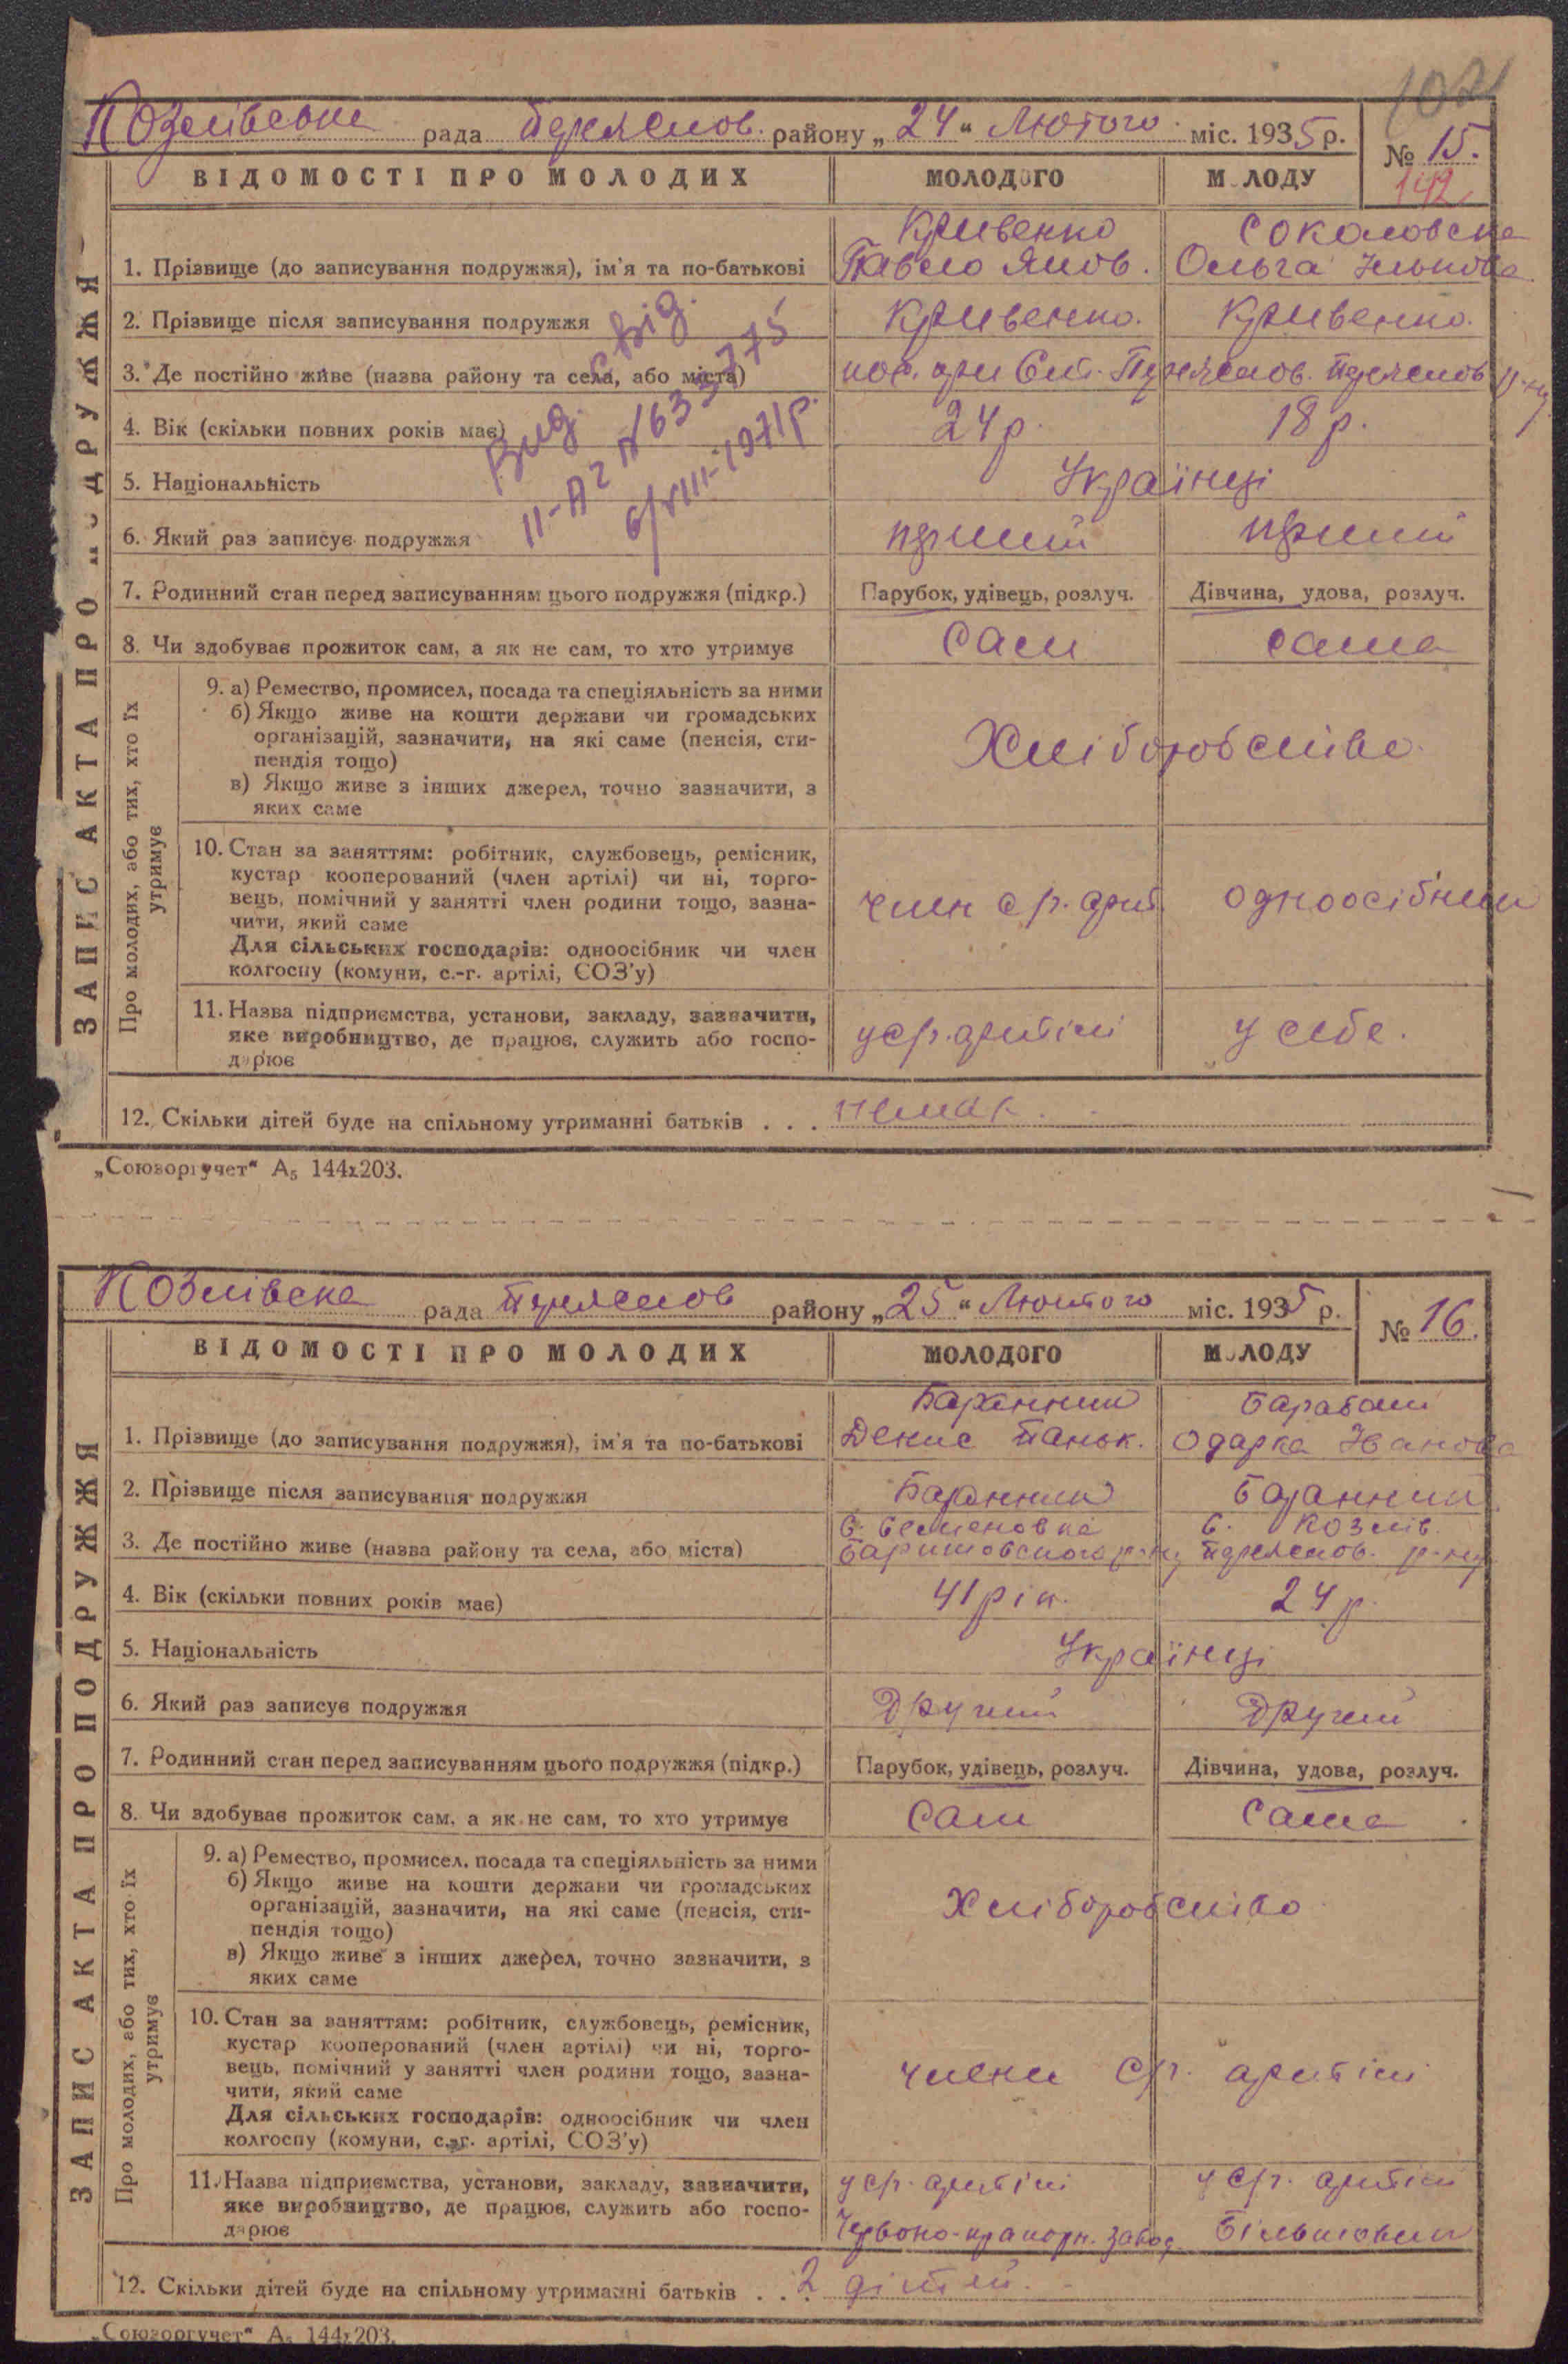 1021
Козлівська рада Переяслов. району „24“ Лютого міс. 1935 р.
№ 15.
142
ВІДОМОСТІ ПРО МОЛОДИХ МОЛОДОГО МОЛОДУ
ЗАПИС АКТА ПРО ПОДРУЖЖЯ
1. Прізвище (до записування подружжя), ім'я та по-батькові
Кривенко Соколовска
Павло Яков. Ольга Ількова
2. Прізвище після записування подружжя Кривенко. Кривенко.
3. Де постійно живе (назва району та села, або міста) при Переяслов. Переяслов р-ну
4. Вік (скільки повних років має) 24 р. 18 р.
5. Національність Українці
6. Який раз записує подружжя перший перший
7. Родинний стан перед записуванням цього подружжя (підкр.) Парубок, удівець, розлуч. Дівчина, удова, розлуч.
8. Чи здобуває прожиток сам, а як не сам, то хто утримує Сам сама
Вид. свід.
II-А2 №633775
6/VIII-1971р.
Про молодих, або тих, хто їх утримує
9. а) Ремество, промисел, посада та спеціяльність за ними
б) Якщо живе на кошти держави чи громадських
організацій, зазначити, на які саме (пенсія, сти-
пендія тощо)
в) Якщо живе з інших джерел, точно зазначити, з
яких саме
Хліборобство.
10. Стан за заняттям: робітник, службовець, ремісник,
кустар кооперований (член артілі) чи ні, торго-
вець, помічний у занятті член родини тощо, зазна-
чити, який саме
Для сільських господарів: одноосібник чи член
колгоспу (комуни, с.-г. артілі, СОЗ'у)
член ср. арт. одноосібниця
11. Назва підприємства, установи, закладу, зазначити,
яке виробництво, де працює, служить або госпо-
дарює
у ср. артілі у себе.
12. Скільки дітей буде на спільному утриманні батьків . . . немає.
„Союзоргучет“ А₅ 144х203.
Козлівска рада Переяслов району „25“ Лютого міс. 1935 р.
№ 16.
ВІДОМОСТІ ПРО МОЛОДИХ МОЛОДОГО МОЛОДУ
ЗАПИС АКТА ПРО ПОДРУЖЖЯ
1. Прізвище (до записування подружжя), ім'я та по-батькові
Баранник Барабаш
Денис Паньк. Одарка Іванова
2. Прізвище після записування подружжя Баранник Баранник
3. Де постійно живе (назва району та села, або міста)
С. Семеновка С. Козлів.
Баришовского р-ну Переяслов. р-ну
4. Вік (скільки повних років має) 41 рік. 24 р.
5. Національність Українці
6. Який раз записує подружжя Другий Другий
7. Родинний стан перед записуванням цього подружжя (підкр.) Парубок, удівець, розлуч. Дівчина, удова, розлуч.
8. Чи здобуває прожиток сам, а як не сам, то хто утримує Сам Сама
Про молодих, або тих, хто їх утримує
9. а) Ремество, промисел, посада та спеціяльність за ними
б) Якщо живе на кошти держави чи громадських
організацій, зазначити, на які саме (пенсія, сти-
пендія тощо)
в) Якщо живе з інших джерел, точно зазначити, з
яких саме
Хліборобство
10. Стан за заняттям: робітник, службовець, ремісник,
кустар кооперований (член артілі) чи ні, торго-
вець, помічний у занятті член родини тощо, зазна-
чити, який саме
Для сільських господарів: одноосібник чи член
колгоспу (комуни, с.-г. артілі, СОЗ'у)
члени ср. артілі
11. Назва підприємства, установи, закладу, зазначити,
яке виробництво, де працює, служить або госпо-
дарює
у ср. артілі у ср. артілі
Червоно-прапорн. завод. Більшовик
12. Скільки дітей буде на спільному утриманні батьків . . . 2 дітей.
„Союзоргучет“ А₅ 144х203.